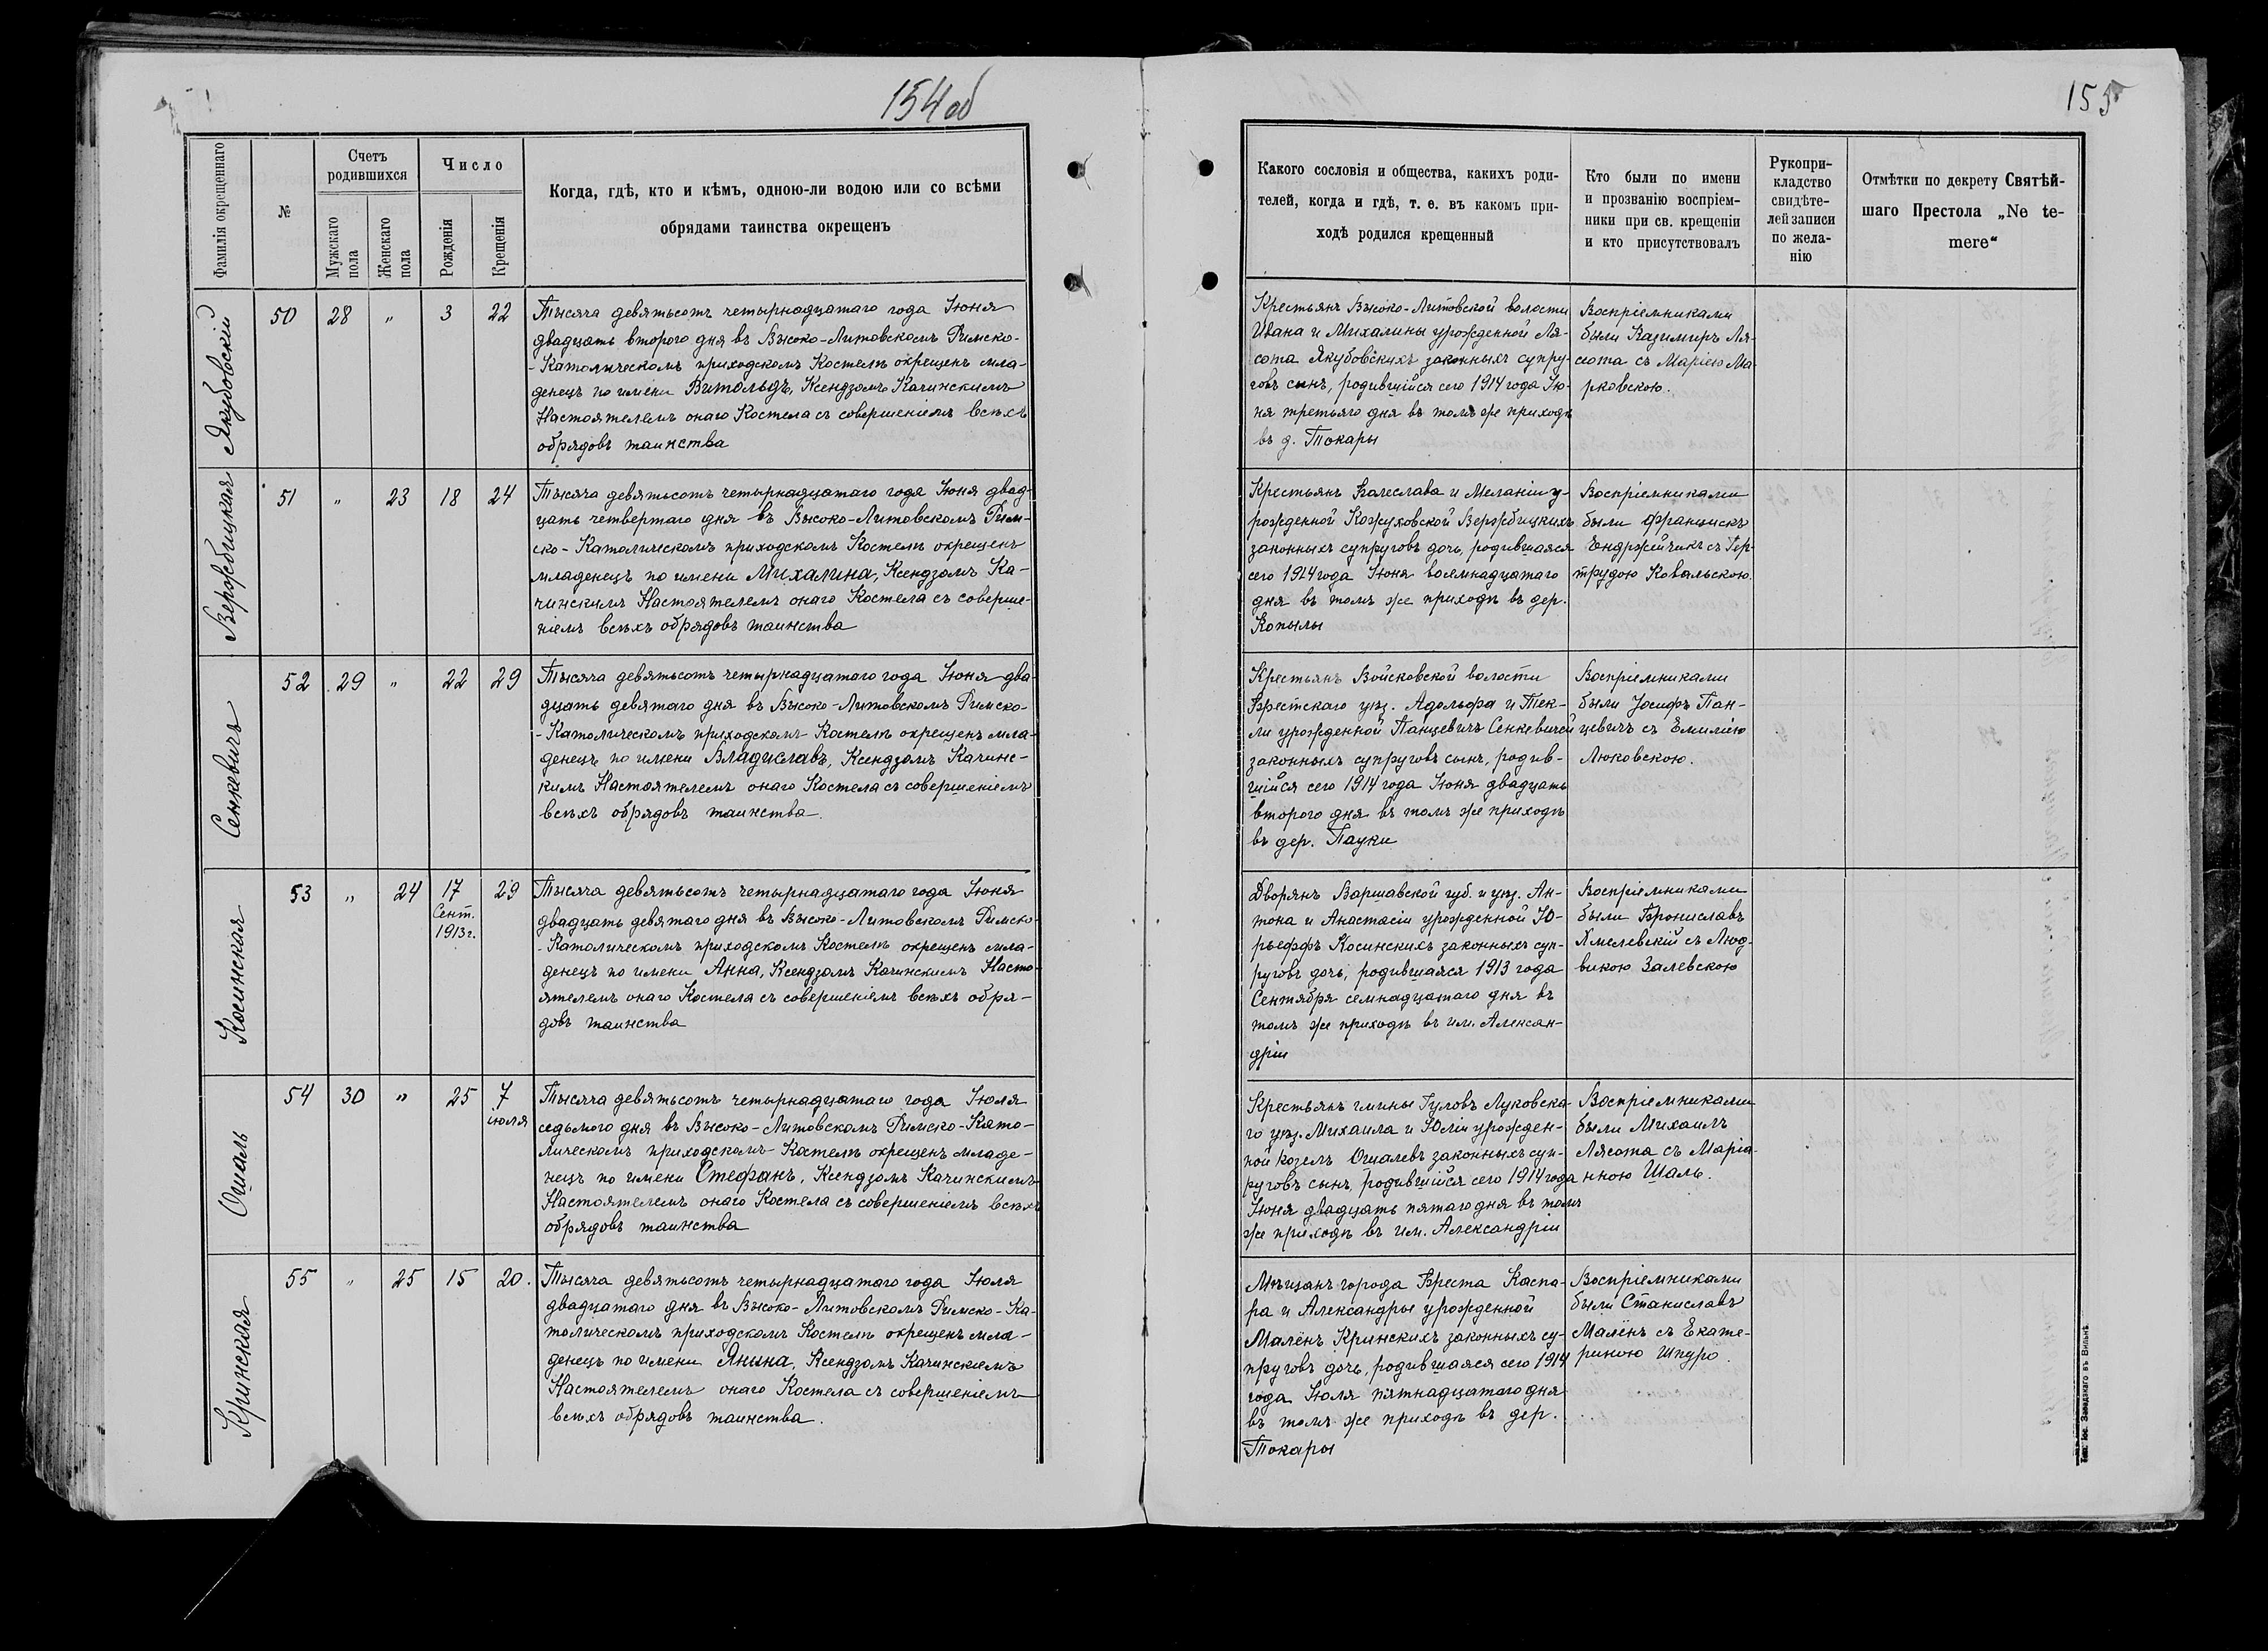 154 об
Фамилія окрещеннаго
№
Счетъ
родившихся
Мужскаго
пола
Женскаго
пола
Число
Рожденія
Крещенія
Когда, гдѣ, кто и кѣмъ, одною-ли водою или со всѣми
обрядами таинства окрещенъ
Якубовскій
50
28
„
3
22
Тысяча девятьсотъ четырнадцатаго года Іюня
двадцать второго дня въ Высоко-Литовскомъ Римско-
-Католическомъ приходскомъ Костелѣ окрещенъ мла-
денец по имени Витольдъ, Ксендзомъ Качинскимъ
Настоятелемъ онаго Костела съ совершеніемъ всѣхъ
обрядовъ таинства
Вержбицкая
51
„
23
18
24
Тысяча девятьсотъ четырнадцатаго года Іюня двад-
цать четвертаго дня въ Высоко-Литовскомъ Рим-
ско-Католическомъ приходскомъ Костелѣ окрещенъ
младенецъ по имени Михалина, Ксендзомъ Ка-
чинскимъ Настоятелемъ онаго Костела съ соверше-
ніемъ всѣхъ обрядовъ таинства
Сенкевичъ
52
29
„
22
29
Тысяча девятьсотъ четырнадцатаго года Іюня два-
дцать девятаго дня въ Высоко-Литовскомъ Римско-
-Католическомъ приходскомъ Костелѣ окрещенъ мла-
денецъ по имени Владиславъ, Ксендзомъ Качинс-
кимъ Настоятелемъ онаго Костела съ совершеніемъ
всѣхъ обрядовъ таинства.
Косинская
53
„
24
17
Сент.
1913г.
29
Тысяча девятьсотъ четырнадцатаго года Іюня
двадцать девятаго дня въ Высоко-Литовскомъ Римско-
-Католическомъ приходскомъ Костелѣ окрещенъ мла-
денецъ по имени Анна, Ксендзомъ Качинскимъ Насто-
ятелемъ онаго Костела съ совершеніемъ всѣхъ обря-
довъ таинства
Ошаль
54
30
„
25
7
іюля
Тысяча девятьсотъ четырнадцатаго года Іюля
седьмого дня въ Высоко-Литовскомъ Римско-Като-
лическомъ приходскомъ Костелѣ окрещенъ младе-
нецъ по имени Стефанъ, Ксендзомъ Качинскимъ
Настоятелемъ онаго Костела съ совершеніемъ всѣхъ
обрядовъ таинства
Кринская
55
„
25
15
20.
Тысяча девятьсотъ четырнадцатаго года Іюля
двадцатаго дня въ Высоко-Литовскомъ Римско-Ка-
толическомъ приходскомъ Костелѣ окрещенъ мла-
денецъ по имени Янина, Ксендзомъ Качинскимъ
Настоятелемъ онаго Костела съ совершеніемъ
всѣхъ обрядовъ таинства.
155
Какого сословія и общества, какихъ роди-
телей, когда и гдѣ, т. е. въ какомъ при-
ходѣ родился крещенный
Кто были по имени
и прозванію воспріем-
ники при св. крещеніи
и кто присутствовалъ
Рукопри-
кладство
свидѣте-
лей записи
по жела-
нію
Отмѣтки по декрету Святѣй-
шаго Престола „Ne te-
mere“
Крестьянъ Высоко-Литовской волости
Ивана и Михалины урожденной Ля-
сота Якубовскихъ законныхъ супру-
говъ сынъ, родившійся сего 1914 года Ію-
ня третьяго дня въ томъ же приходѣ
въ д. Токары
Воспріемниками
были Казимиръ Ля-
сота съ Маріею Ма-
рковскою.
Крестьянъ Болеслава и Меланіи у-
рожденной Кожуховской Вержбицкихъ
законныхъ супруговъ дочь, родившаяся
сего 1914 года Іюня восемнадцатаго
дня въ томъ же приходѣ въ дер.
Копылы
Воспріемниками
были Францискъ
Ендржейчикъ съ Гер-
трудою Ковальскою.
Крестьянъ Войсковской волости
Брестскаго уѣз. Адольфа и Тек-
ли урожденной Панцевичъ Сенкевичей
законныхъ супруговъ сынъ, родив-
шійся сего 1914 года Іюня двадцать
второго дня въ томъ же приходѣ
въ дер. Пауки
Воспріемниками
были Іосифъ Пан-
цевичъ съ Емиліею
Люковскою.
Дворянъ Варшавской губ. и уѣз. Ан-
тона и Анастасіи урожденной Ю-
рьеффъ Косинскихъ законныхъ суп-
руговъ дочь, родившаяся 1913 года
Сентября семнадцатаго дня въ
томъ же приходѣ въ им. Алексан-
дріи
Воспріемниками
были Брониславъ
Хмелевскій съ Люд-
викою Залевскою
Крестьянъ гмины Гуловъ Луковска-
го уѣз. Михаила и Юліи урожден-
ной Козелъ Ошалевъ законныхъ суп-
руговъ сынъ, родившійся сего 1914 года
Іюня двадцать пятаго дня въ томъ
же приходѣ въ им. Александріи
Воспріемниками
были Михаилъ
Лясота съ Маріа-
нною Шаль.
Мѣщанъ города Бреста Каспа-
ра и Александры урожденной
Малёнъ Кринскихъ законныхъ су-
пруговъ дочь, родившаяся сего 1914
года Іюля пятнадцатаго дня
въ томъ же приходѣ въ дер.
Токары
Воспріемниками
были Станиславъ
Малёнъ съ Екате-
риною Шпуро.
Тип. Іос. Завадзкаго въ Вильнѣ.